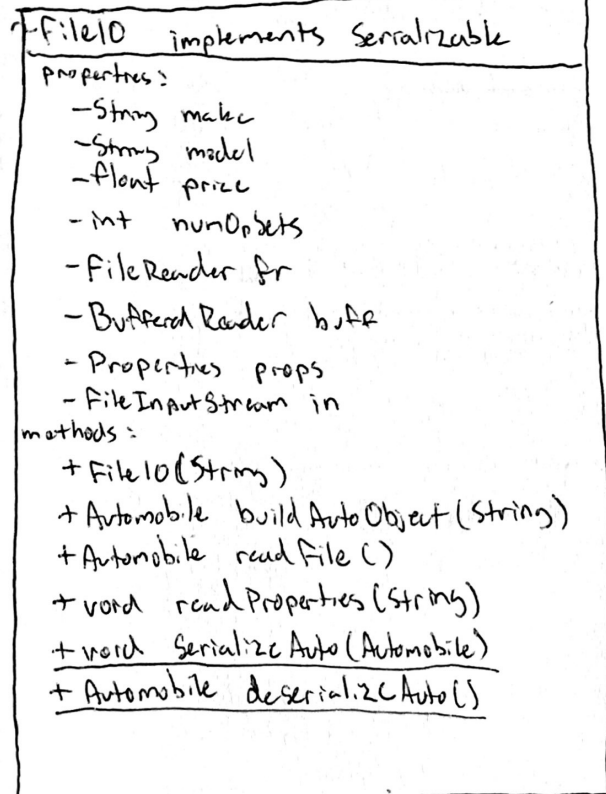 +FileIO implements Serializable
properties:
-String make
-String model
-float price
-int numOpSets
-FileReader fr
-BufferedReader buff
-Properties props
-FileInputStream in
methods:
+FileIO(String)
+Automobile buildAutoObject(String)
+Automobile readFile()
+void readProperties(String)
+void serializeAuto(Automobile)
+Automobile deserializeAuto()